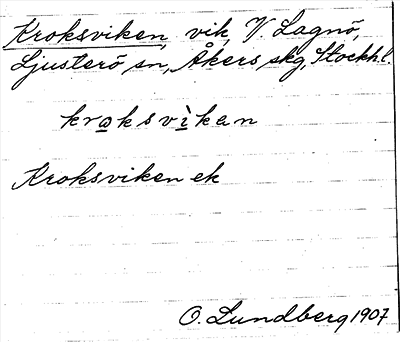 Kroksviken, vik, V. Lagnö,
Ljusterö sn, Åkers skg, Stockh.l.
kråksvìkən
Kroksviken ek
O. Lundberg 1907